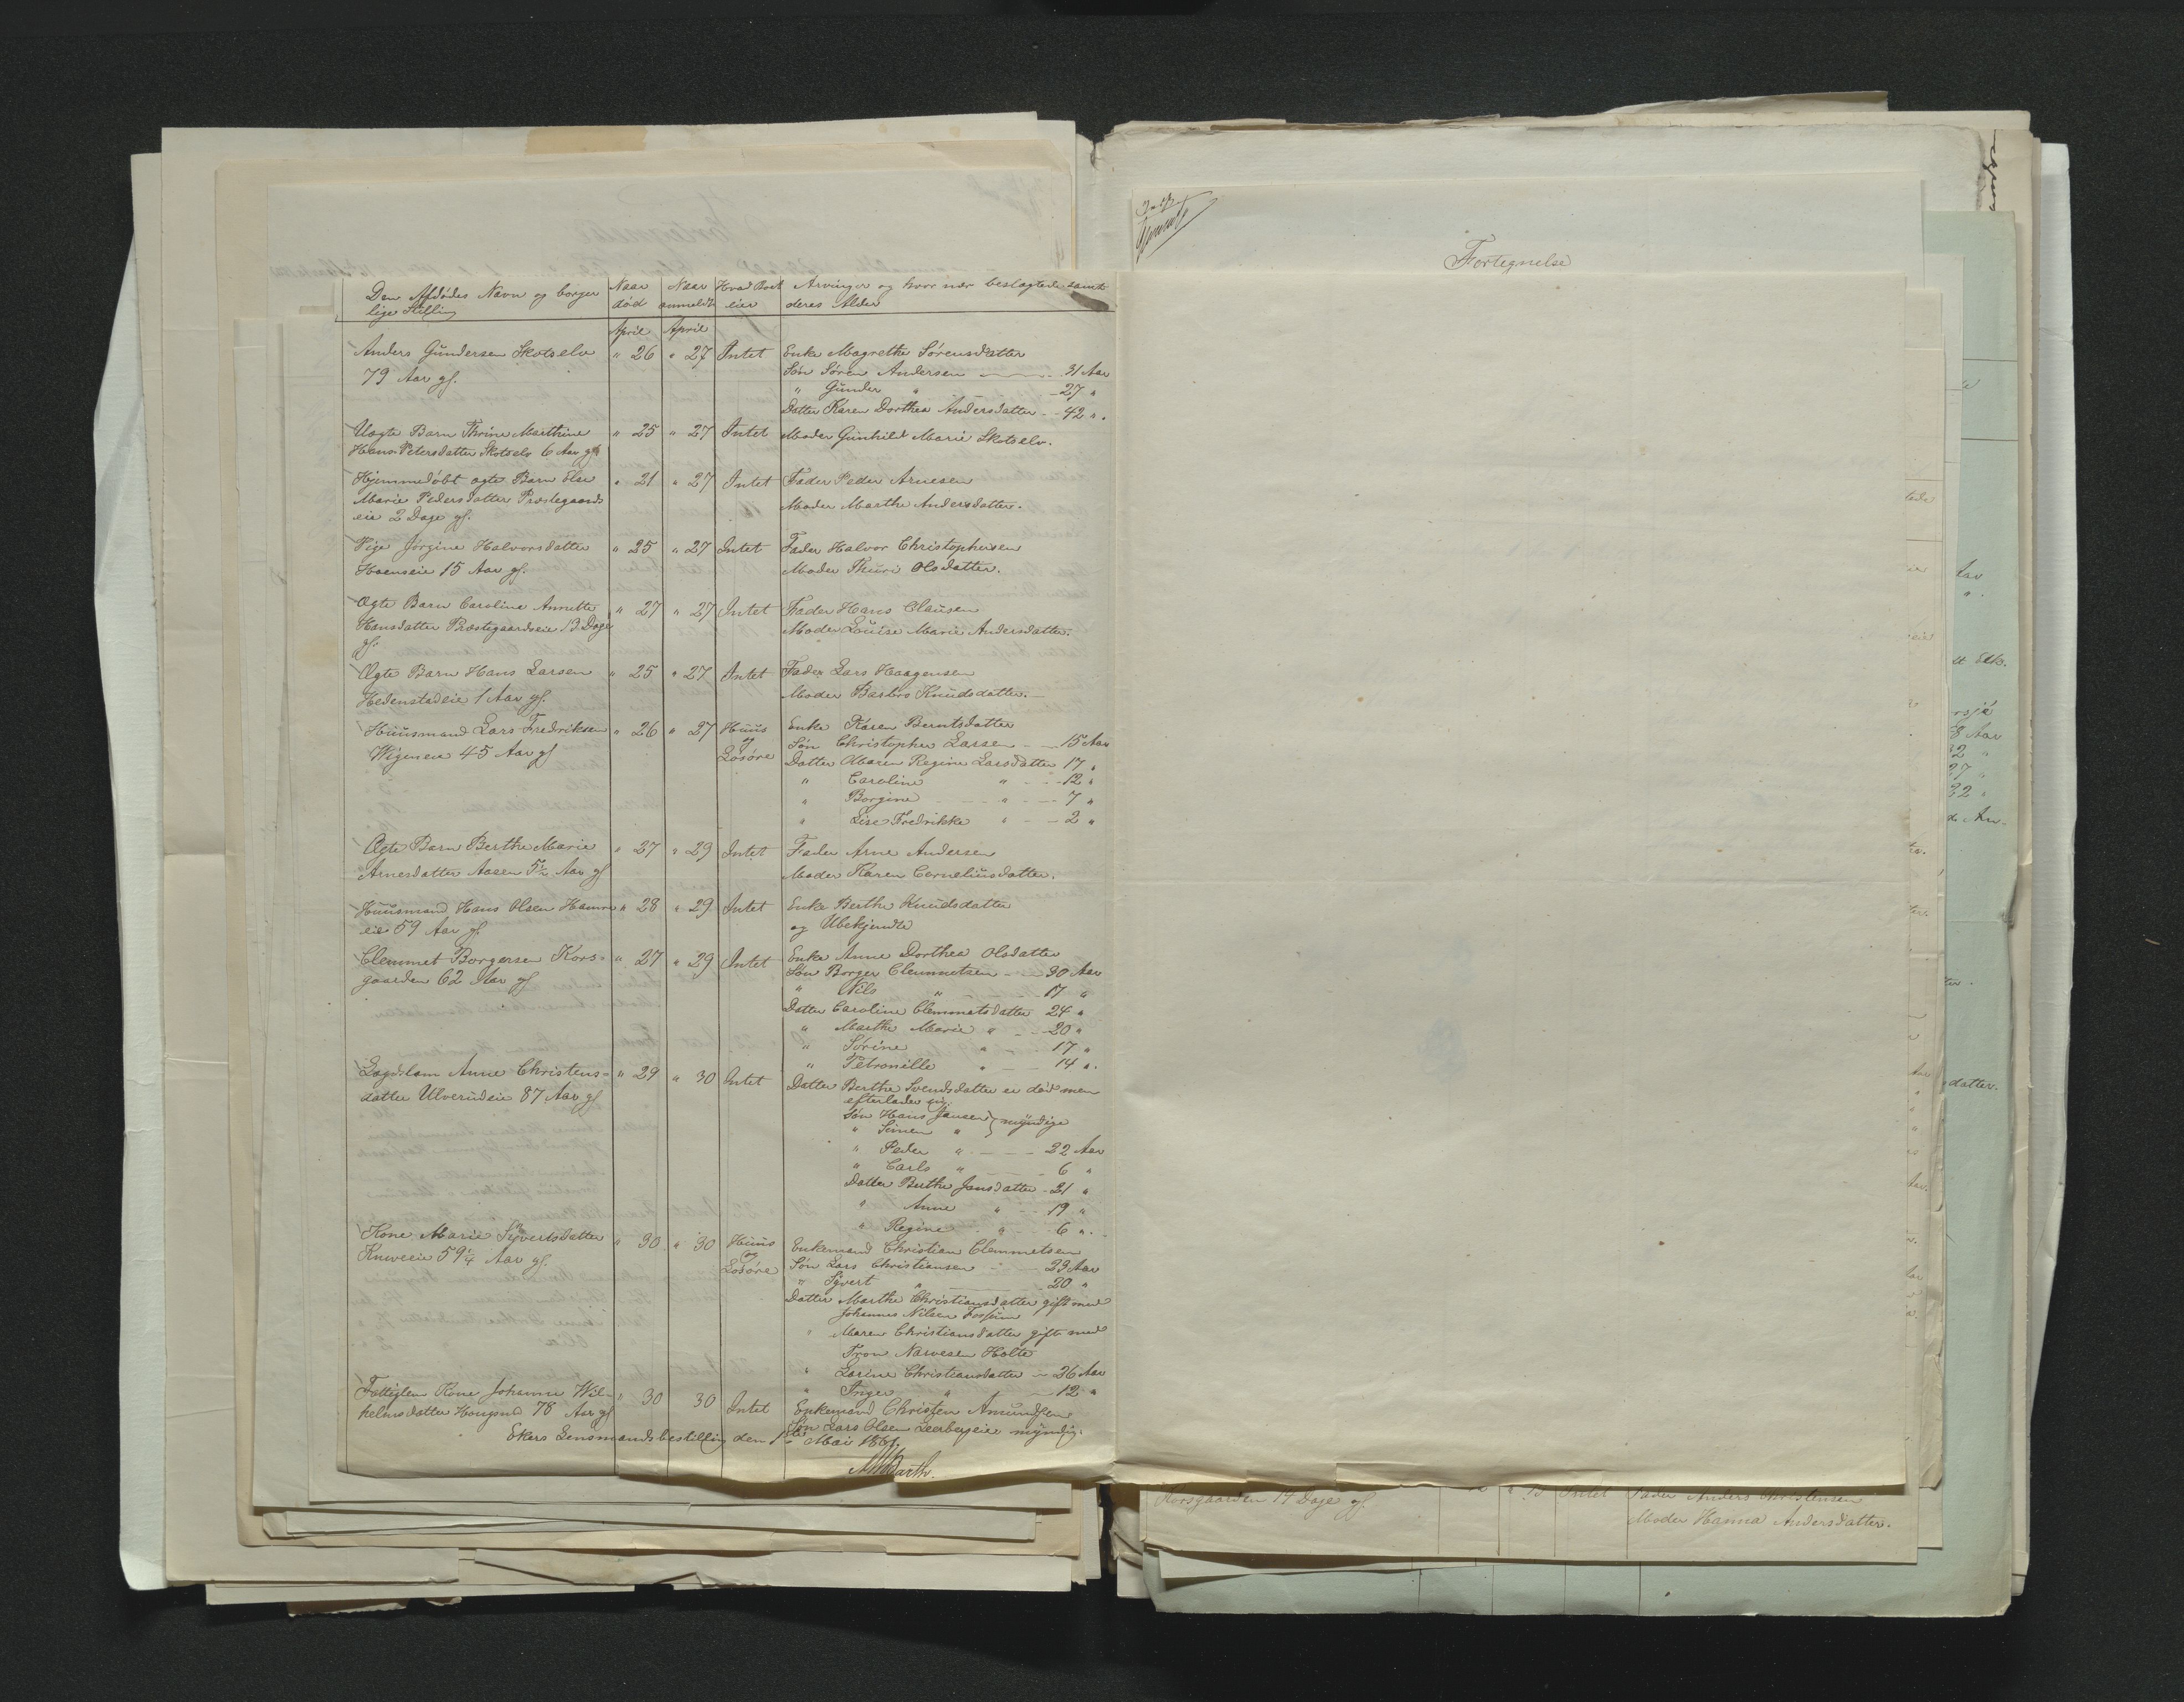 Den Afdødes Navn og borger Naar Naar Hvad Boet Arvinger og hvor nær beslægtede samt
lige Stilling død anmeldt eier deres Alder
April April
Anders Gundersen Skotselv " 26 " 27 Intet Enke Magrethe Sørensdatter
79 Aar gl. Søn Søren Andersen 31 Aar
" Gunder " 27 "
Datter Karen Dorthea Andersdatter 42 ".
Uægte Barn Thrine Marthine " 25 " 27 Intet Moder Gunhild Marie Skotselv.
Hans Petersdatter Skotselv 6 Aar gl
Hjemmedøbt ægte Barn Else " 21 " 27 Intet Fader Peder Arnesen
Marie Pedersdatter Præstegaards Moder Marthe Andersdatter.
eie 2 Dage gl.
Pige Jørgine Halvorsdatter " 25 " 27 Intet Fader Halvor Christophersen
Hoenseie 15 Aar gl. Moder Thuri Olsdatter.
Ægte Barn Caroline Annette " 27 " 27 Intet Fader Hans Clausen
Hansdatter Præstegaardseie 13 Dage Moder Louise Marie Andersdatter.
gl.
Ægte Barn Hans Larsen " 25 " 27 Intet Fader Lars Haagensen
Hedenstadeie 1 Aar gl. Moder Barbro Knudsdatter.
Huusmand Lars Fredriksen " 26 " 27 Huus Enke Karen Berntsdatter
Wigeneie 45 Aar gl og Søn Christopher Larsen 15 Aar
Løsøre Datter Maren Regine Larsdatter 17 "
" Caroline " 12 "
" Borgine " 7 "
" Lise Fredrikke " 2 "
Ægte Barn Berthe Marie " 27 " 29 Intet Fader Arne Andersen
Arnesdatter Aasen 5½ Aar gl Moder Karen Corneliusdatter.
Huusmand Hans Olsen Hamre " 28 " 29 Intet Enke Berthe Knudsdatter
eie 59 Aar gl. og Ubekjendte
Clemmet Borgersen Kors= " 27 " 29 Intet Enke Anne Dorthea Olsdatter
gaarden 62 Aar gl Søn Borger Clemmetsen 30 Aar
" Nils " 17 "
Datter Caroline Clemmetsdatter 24 "
" Marthe Marie " 20 "
" Sørine " 17 "
" Petronille " 14 ".
Lægdslem Anne Christens= " 29 " 30 Intet Datter Berthe Svendsdatter er død men
datter Ulverudeie 87 Aar gl efterlader sig.
Søn Hans Jansen } myndige
" Simen "
" Peder " 22 Aar
" Carls " 6 "
Datter Berthe Jansdatter 21 "
" Anne " 19 "
" Regine " 6 ".
Kone Marie Syvertsdatter " 30 " 30 Huus Enkemand Christian Clemmetsen
Kniveeie 59¼ Aar gl. og Søn Lars Christiansen 23 Aar
Løsøre " Syvert " 20 "
Datter Marthe Christiansdatter gift med
Johannes Nilsen Fossum
" Maren Christiansdatter gift med
Tron Narvesen Holte
" Larine Christiansdatter 26 Aar
" Inger " 12 "
Fattiglem Kone Johanne Wil= " 30 30 Intet Enkemand Christen Amundsen
helmsdatter Hougsund 78 Aar gl Søn Lars Olsen Leerbergeie myndig.
Ekers Lensmandsbestilling den 1ste Mai 1861
Barth.
Fortegnelse
Korsgaarden 14 Dage gl. Intet Fader Anders Christensen
Moder Hanna Andersdatter.